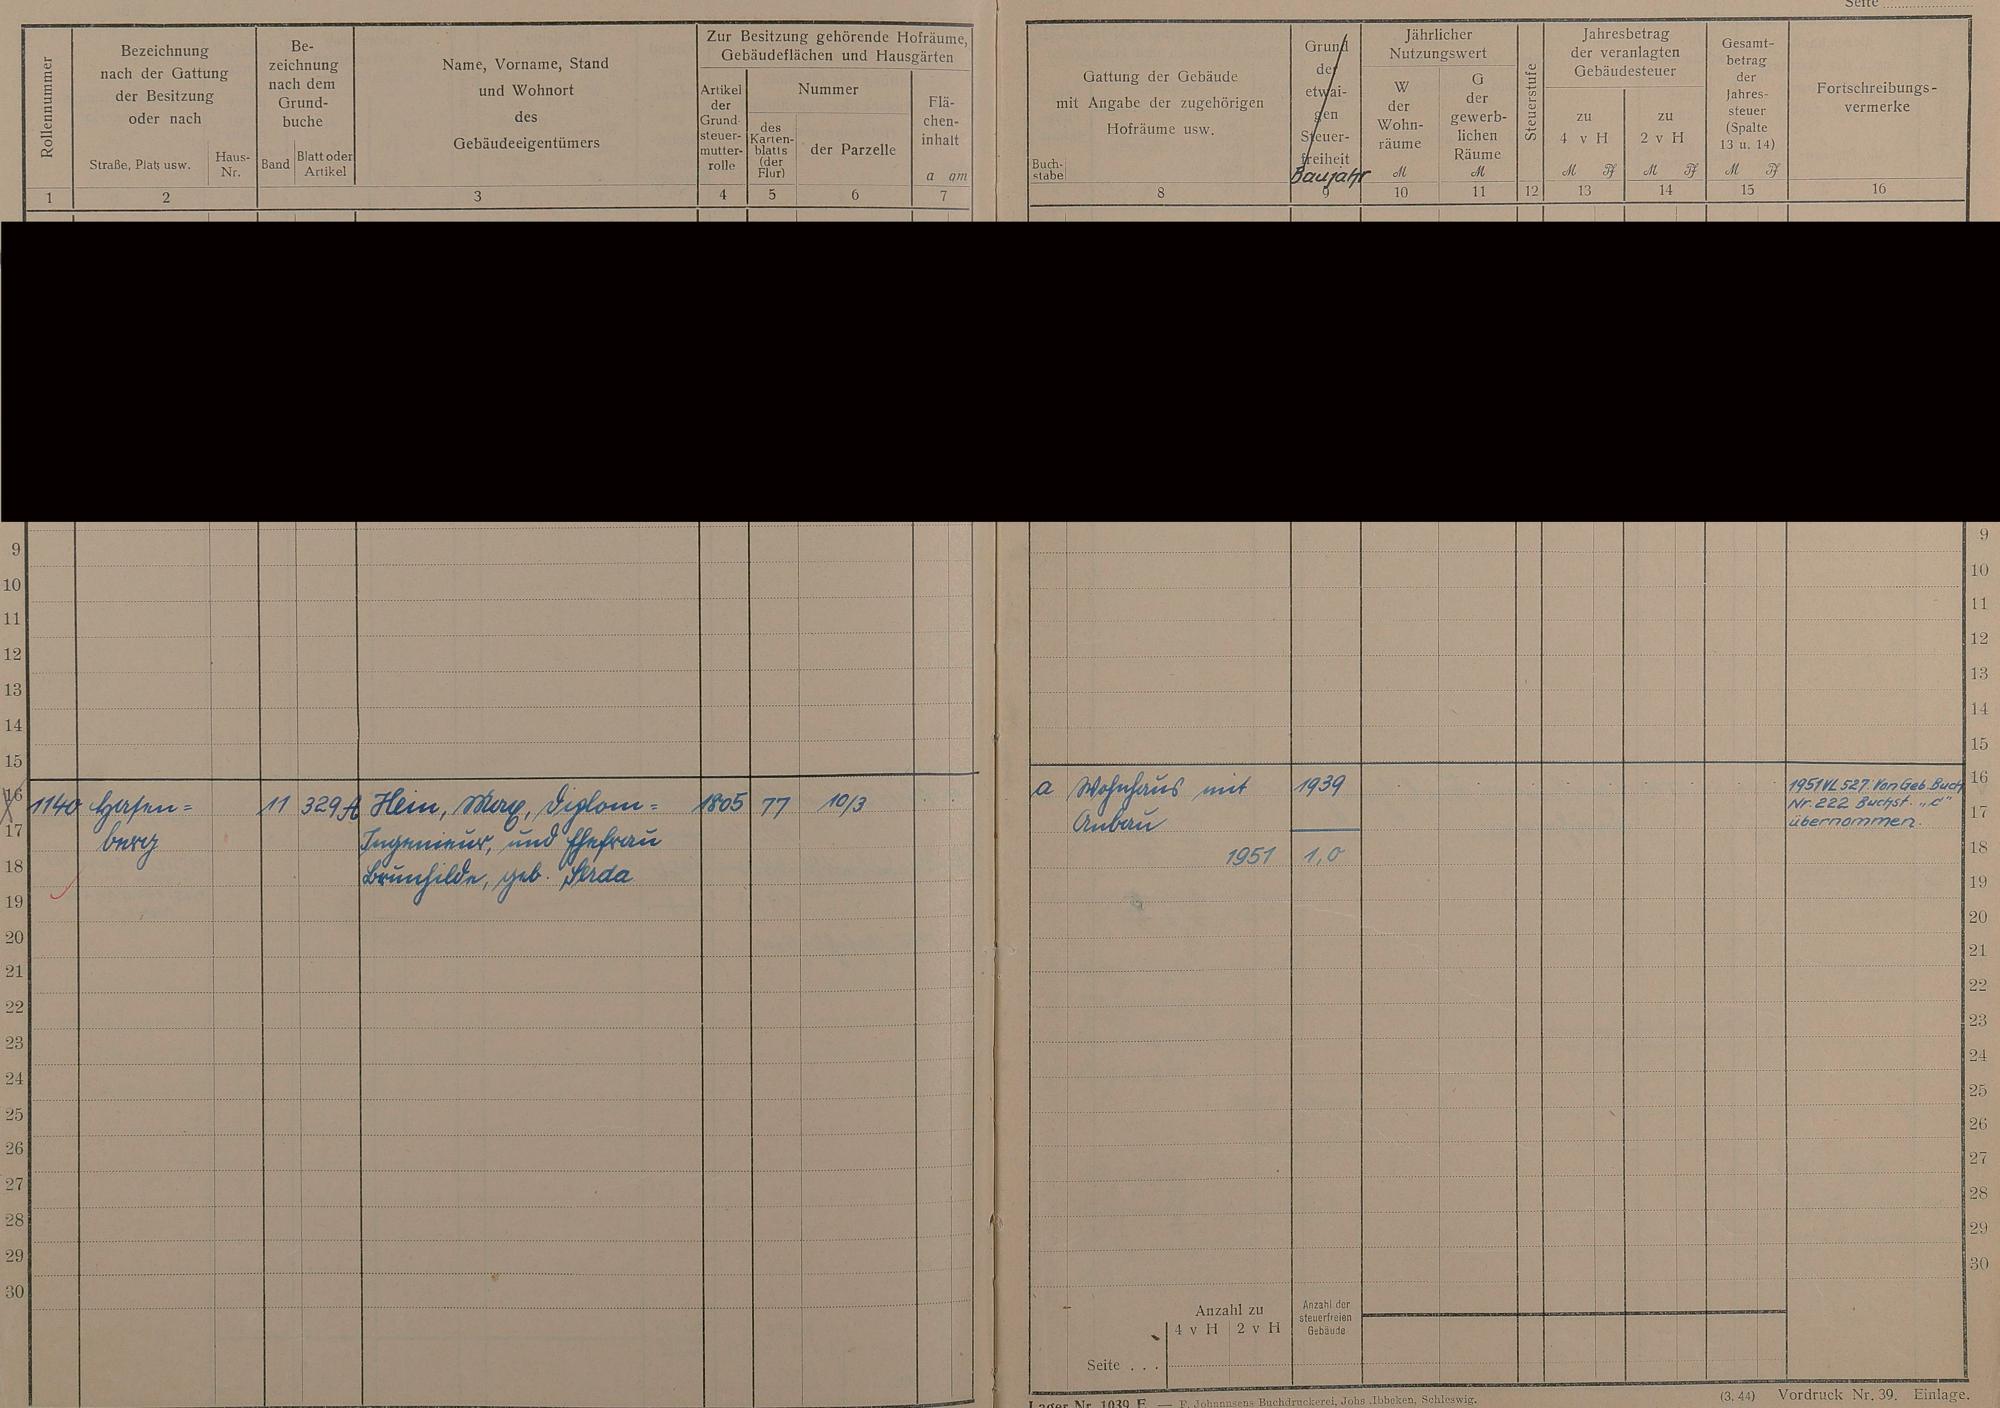 Seite
Rollennummer
Bezeichnung
nach der Gattung
der Besitzung
oder nach
Straße, Platz usw.
Haus-
Nr.
Be-
zeichnung
nach dem
Grund-
buche
Band
Blatt oder
Artikel
Name, Vorname, Stand
und Wohnort
des
Gebäudeeigentümers
Zur Besitzung gehörende Hofräume,
Gebäudeflächen und Hausgärten
Artikel
der
Grund-
steuer-
mutter-
rolle
Nummer
des
Karten-
blatts
(der
Flur)
der Parzelle
Flä-
chen-
inhalt
a qm
1 2 3 4 5 6 7
Gattung der Gebäude
mit Angabe der zugehörigen
Hofräume usw.
Buch-
stabe
Grund
der
etwai-
gen
Steuer-
freiheit
Baujahr
Jährlicher
Nutzungswert
W
der
Wohn-
räume
M
G
der
gewerb-
lichen
Räume
M
Steuerstufe
Jahresbetrag
der veranlagten
Gebäudesteuer
zu
4 v H
M Pf
zu
2 v H
M Pf
Gesamt-
betrag
der
Jahres-
steuer
(Spalte
13 u. 14)
M Pf
Fortschreibungs-
vermerke
8 9 10 11 12 13 14 15 16
9
10
11
12
13
14
15
16
17
18
19
20
21
22
23
24
25
26
27
28
29
30
1140 Hasen=
berg
11 329A
Hein, Max, Diplom=
Ingenieur, und Ehefrau
Brunhilde, geb. Serda
1805 77 10/3
a Wohnhaus mit 1939
Anbau
1951 1,0
1951 VL 527. Von Geb. Buch
Nr. 222 Buchst. „c"
übernommen.
9
10
11
12
13
14
15
16
17
18
19
20
21
22
23
24
25
26
27
28
29
30
Anzahl zu
4 v H 2 v H
Anzahl der
steuerfreien
Gebäude
Seite . . .
Lager Nr. 1039 E — F. Johannsens Buchdruckerei, Johs. Ibbeken, Schleswig.
(3, 44) Vordruck Nr. 39. Einlage.